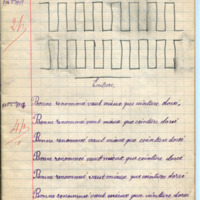 Ecriture
Bonne renommée vaut mieux que ceinture dorée,
Bonne renommée vaut mieux que ceinture dorée
Bonne renommée vaut mieux que ceinture dorée
Bonne renommée vaut mieux que ceinture dorée
Bonne renommée vaut mieux que ceinture dorée
Bonne renommée vaut mieux que ceinture dorée